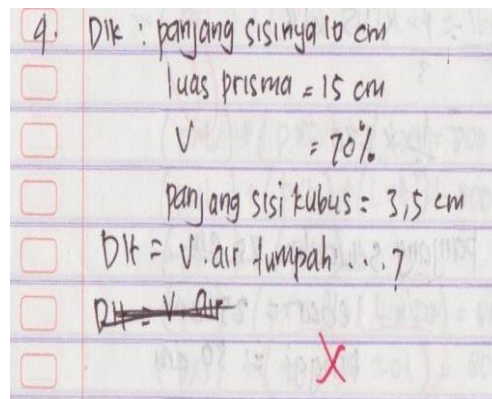 4. Dik : panjang sisinya 10 cm
luas prisma = 15 cm
V = 70%
panjang sisi kubus = 3,5 cm
Dit = V. air tumpah . . . ?
Dit = V air